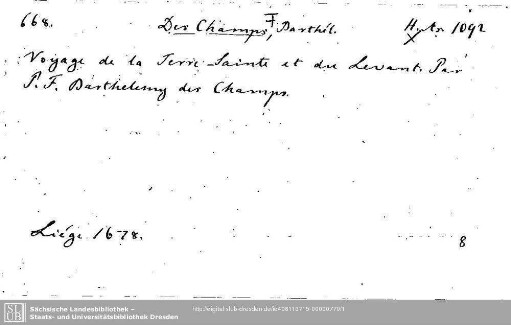 668. Des Champs, F. Barthél.
Voyage de la Terre-Sainte et du Levant. Par
P. F. Barthelemy des Champs.
Liége 1678. 8
Sächsische Landesbibliothek –
Staats- und Universitätsbibliothek Dresden